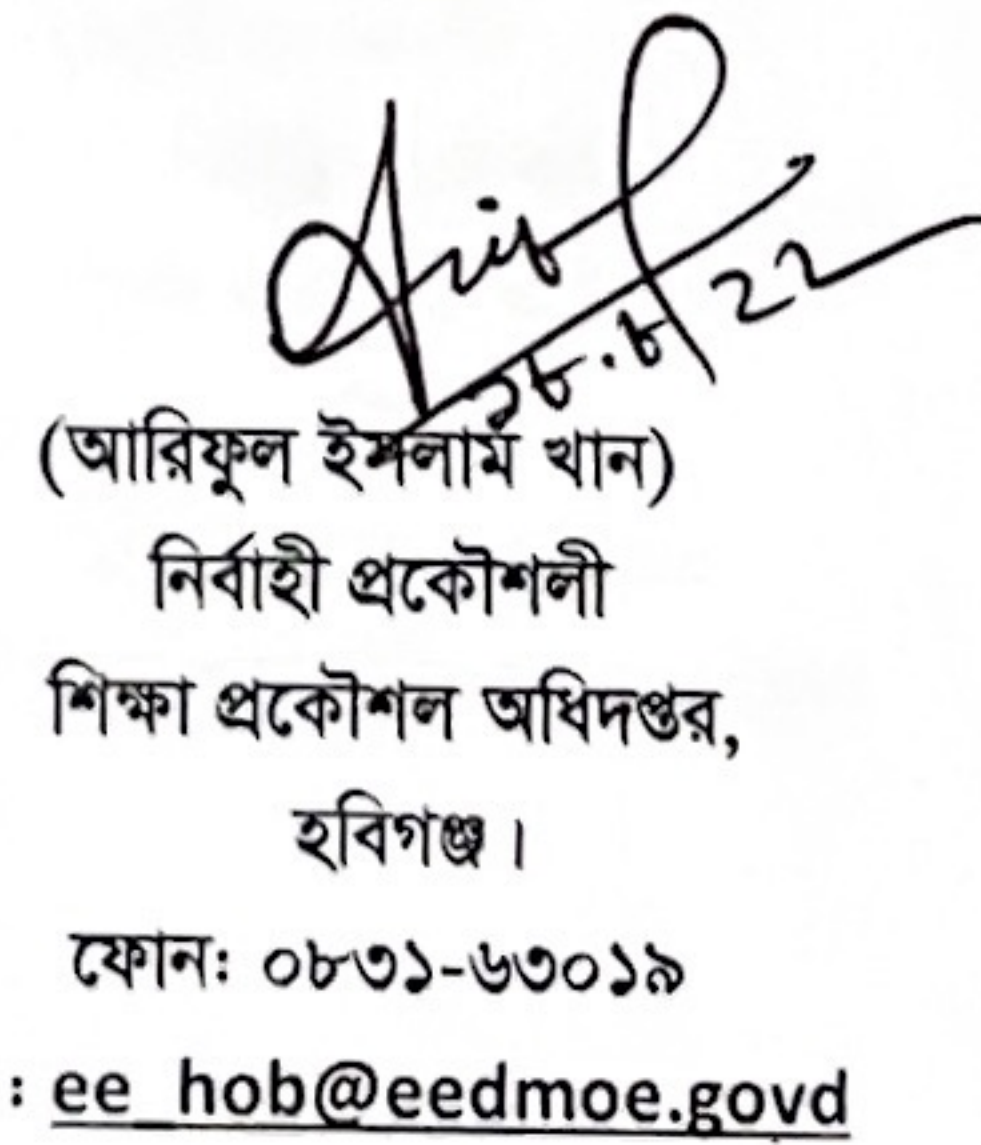 Arif
১৮.৮.২২
(আরিফুল ইসলাম খান)
নির্বাহী প্রকৌশলী
শিক্ষা প্রকৌশল অধিদপ্তর,
হবিগঞ্জ।
ফোনঃ ০৮৩১-৬৩০১৯
: ee_hob@eedmoe.govd